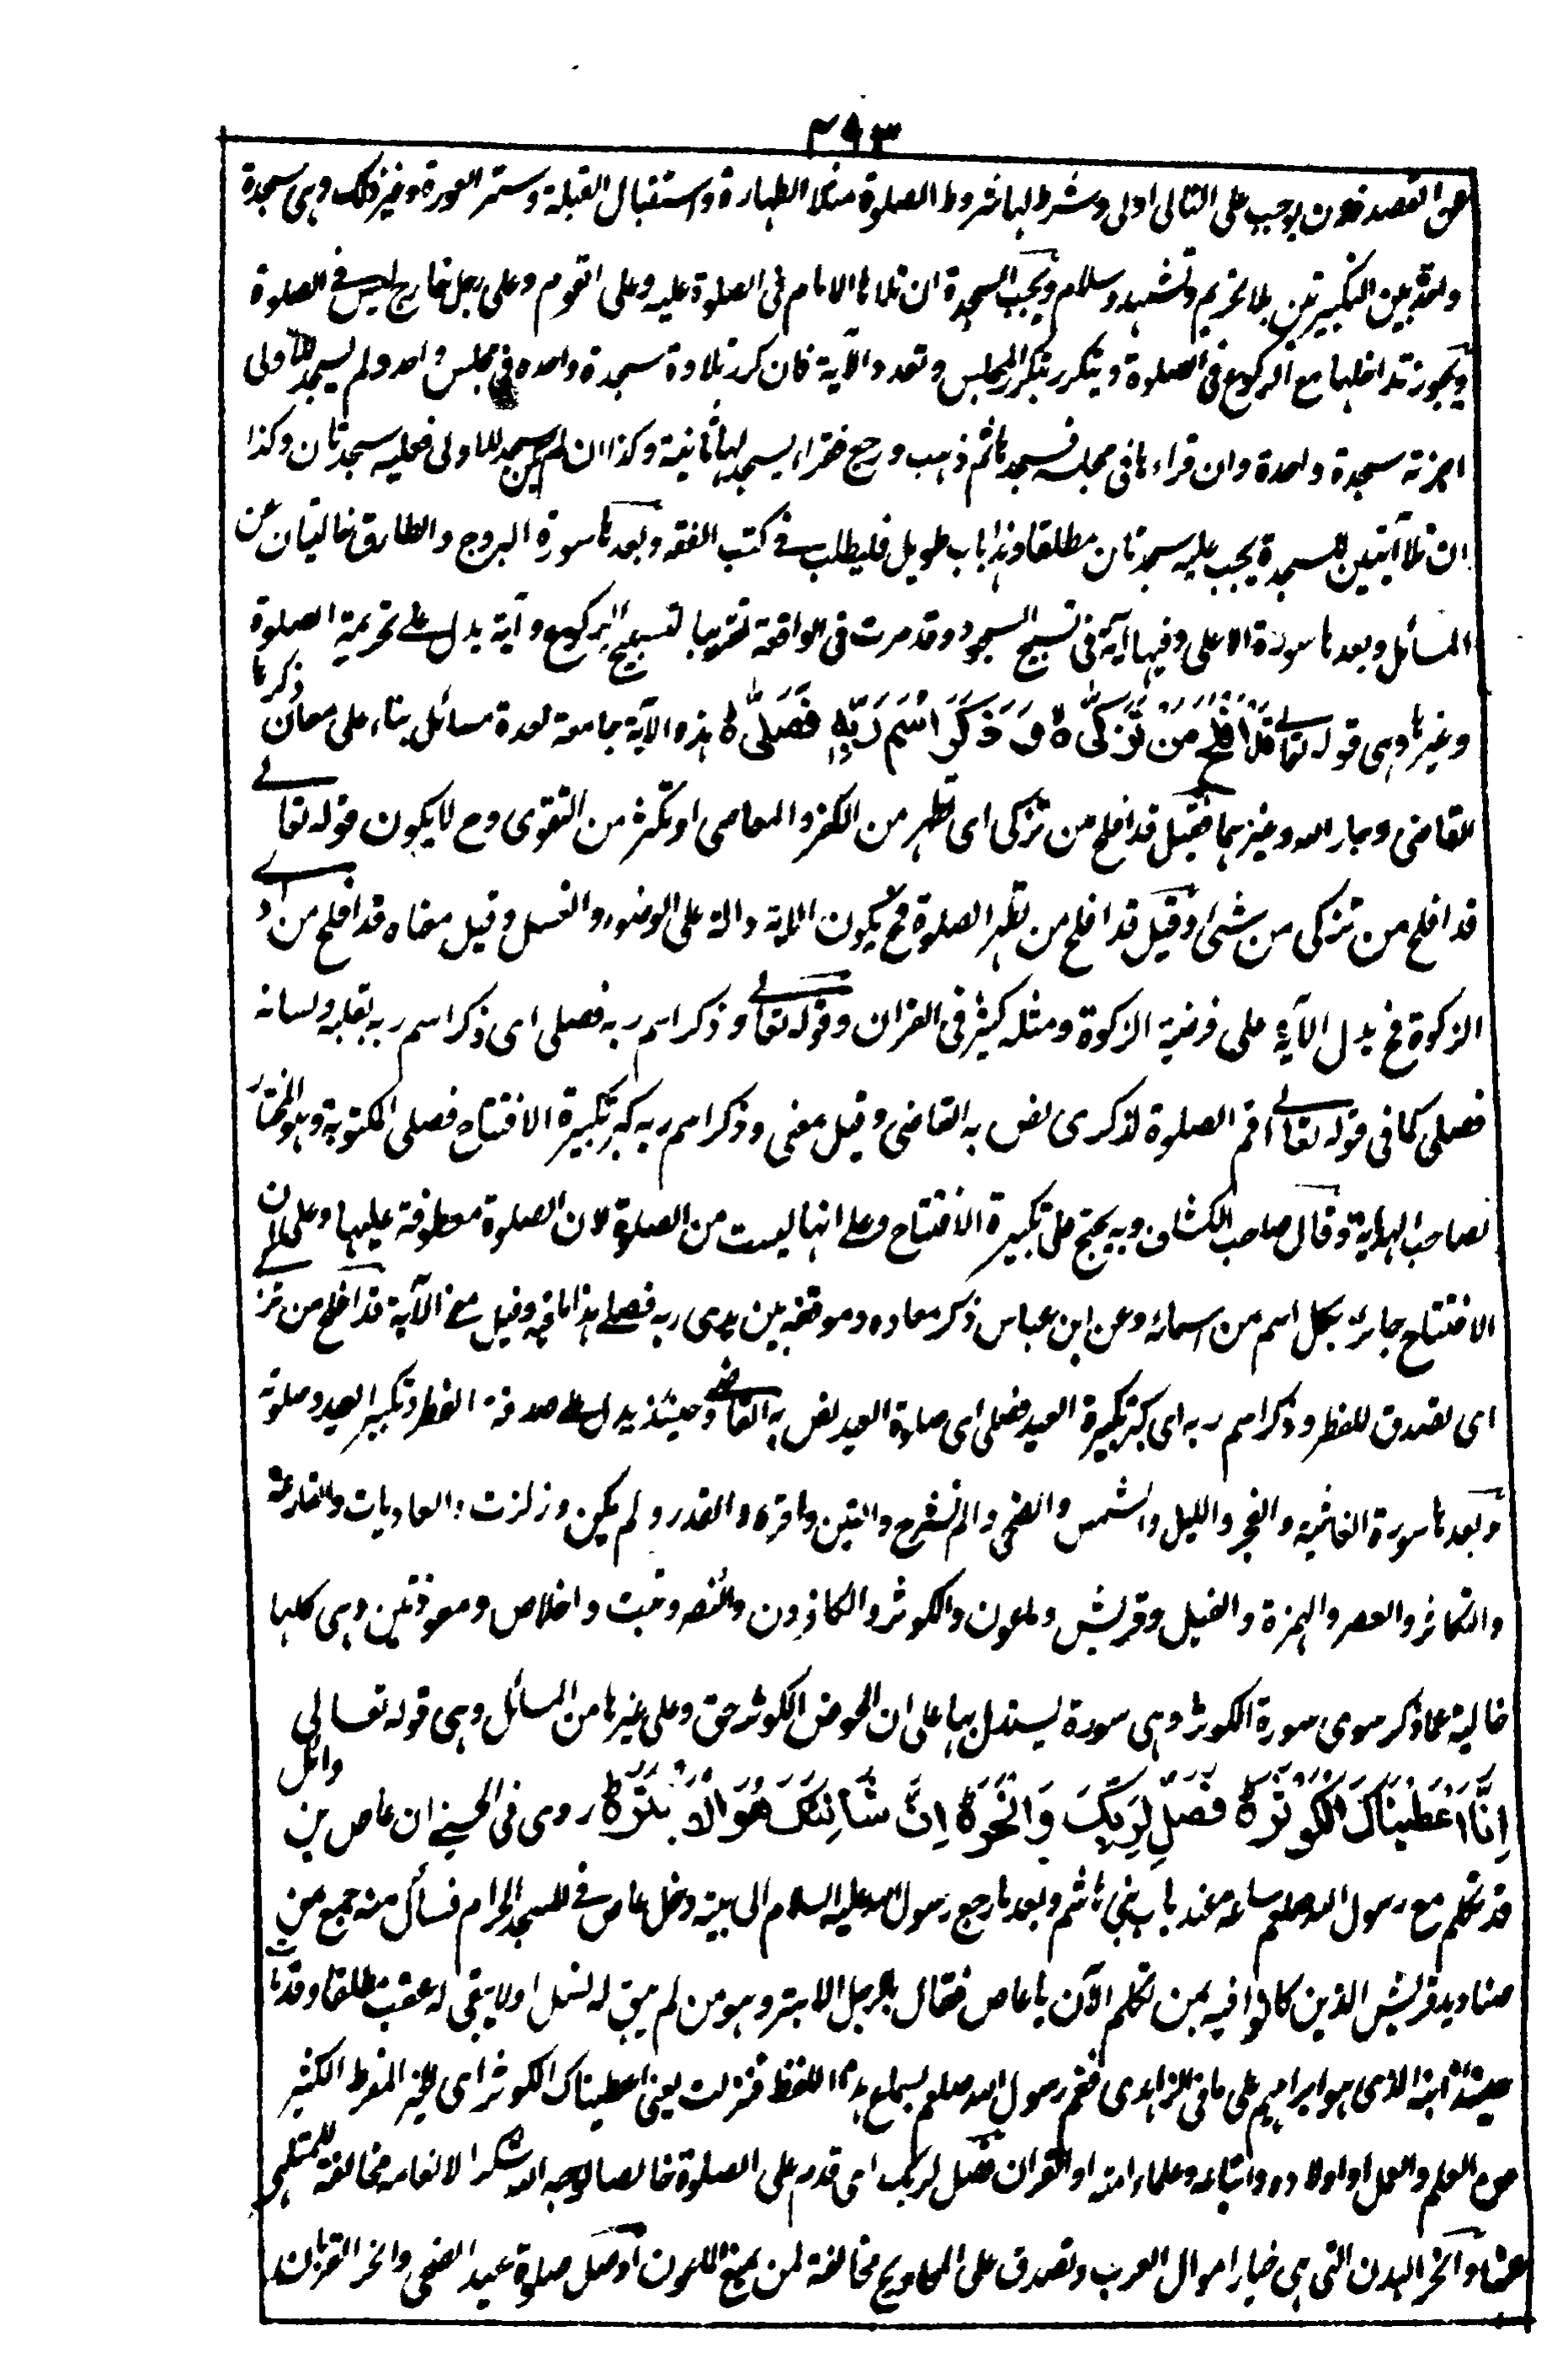 ٢٩٣
عن القصد فلان يوجب على التالى اولى وشرط لها شروط الصلوة مثل الطهارة واستقبال القبلة وستر العورة وغير ذلك وهى سجدة
واحدة بين التكبيرتين بلا تحريم وتشهد وسلام ويجب السجدة ان تلاها الامام فى الصلوة عليه وعلى القوم وعلى رجل خارج ليس فى الصلوة
ويجوز تداخلها مع الركوع فى الصلوة ويتكرر بتكرر المجلس وتعدد الآية فان كرر تلاوة سجدة واحدة فى مجلس واحد ولم يسجد للاولى
اجزته سجدة واحدة وان قراءها فى مجلسه فسجدها ثم ذهب ورجع فقراء يسجد لها ثانية وكذا ان لم يكن سجد للاولى فعليه سجدتان وكذا
ان تلا آيتين للسجدة يجب عليه سجدتان مطلقا وهذا باب طويل فليطلب فى كتب الفقه وبعدها سورة البروج والطارق خاليتان عن
المسائل وبعدها سورة الاعلى وفيها آية فى تسبيح السجود وقد مرت فى الواقعة تقريبا لتسبيح الركوع وآية يدل على تحريمة الصلوة
وغيرها وهى قوله تعالى قَدْ اَفْلَحَ مَنْ تَزَكّٰى ۵ وَذَكَرَ اسْمَ رَبِّهٖ فَصَلّٰى ۵ هذه الآية جامعة لعدة مسائل بناء على معان ذكرها
القاضى وجار الله وغيرهما فقيل قد افلح من تزكى اى تطهر من الكفر والمعاصى او تكثر من التقوى وح لا يكون قوله تعالى
قد افلح من تزكى من شئ وقيل قد افلح من تطهر للصلوة فح يكون الاية دالة على الوضوء والغسل وقيل معناه قد افلح من ادى
الزكوة فح يدل الآية على فرضية الزكوة ومثله كثير فى القران وقوله تعالى وذكر اسم ربه فصلى اى ذكر اسم ربه بقلبه ولسانه
فصلى كما فى قوله تعالى اقم الصلوة لذكرى نص به القاضى وقيل معنى وذكر اسم ربه كبر تكبيرة الافتتاح فصلى المكتوبة وهو المختار
لصاحب الهداية وقال صاحب الكشاف وبه يحتج على تكبيرة الافتتاح وعلى انها ليست من الصلوة لان الصلوة معطوفة عليها وعلى ان
الافتتاح جائز بكل اسم من اسمائه وعن ابن عباس ذكر معاده وموقفه بين يدى ربه فصلى هذا ما فيه وقيل معنى الآية قد افلح من تزكى
اى تصدق للفطر وذكر اسم ربه اى كبر تكبيرة العيد فصلى اى صلوة العيد نص به القاضى وحينئذ يدل على صدقة الفطر وتكبير العيد وصلوته
وبعدها سورة الغاشية والفجر والليل والشمس والضحى والم نشرح والتين واقرء والقدر ولم يكن وزلزلت والعاديات والقارعة
والتكاثر والعصر والهمزة والفيل وقريش وماعون والكوثر والكافرون والنصر وتبت واخلاص ومعوذتين وهى كلها
خالية عما ذكر سوى سورة الكوثر وهى سورة يستدل بها على ان الحوض الكوثر حق وعلى غيرها من المسائل وهى قوله تعالى
اِنَّا اَعْطَيْنٰاكَ الْكَوْثَرَ ۵ فَصَلِّ لِرَبِّكَ وَانْحَرْ ۵ اِنَّ شَانِئَكَ هُوَ الْاَبْتَرُ ۵ روى فى الحسينى ان عاص بن وائل
قد تكلم مع رسول الله صلعم ساعة عند باب بنى هاشم وبعدها رجع رسول الله عليه السلام الى بيته ودخل عاص فى المسجد الحرام فسأل منه جمع من
صناديد قريش الذين كانوا فيه بمن تكلم الآن يا عاص فقال بالرجل الابتر وهو من لم يبق له نسل اولا يبقى له عقب مطلقا وقد مات
حينئذ ابنه الذى هو ابراهيم على ما فى الزاهدى فغم رسول الله صلعم بسماع هذا اللفظ فنزلت يعنى اعطيناك الكوثر اى الخير المفرط الكثير
من العلم والعمل او اولاده واتباعه وعلماء امته او القران فصل لربك اى قدم على الصلوة خالصا لوجه الله شكرا لانعامه مخالفة للمتلهى
عنها وانحر البدن التى هى خيار اموال العرب وتصدق على المحاويج مخالفة لمن يمنع الماعون او صل صلوة عيد الضحى وانحر القربان